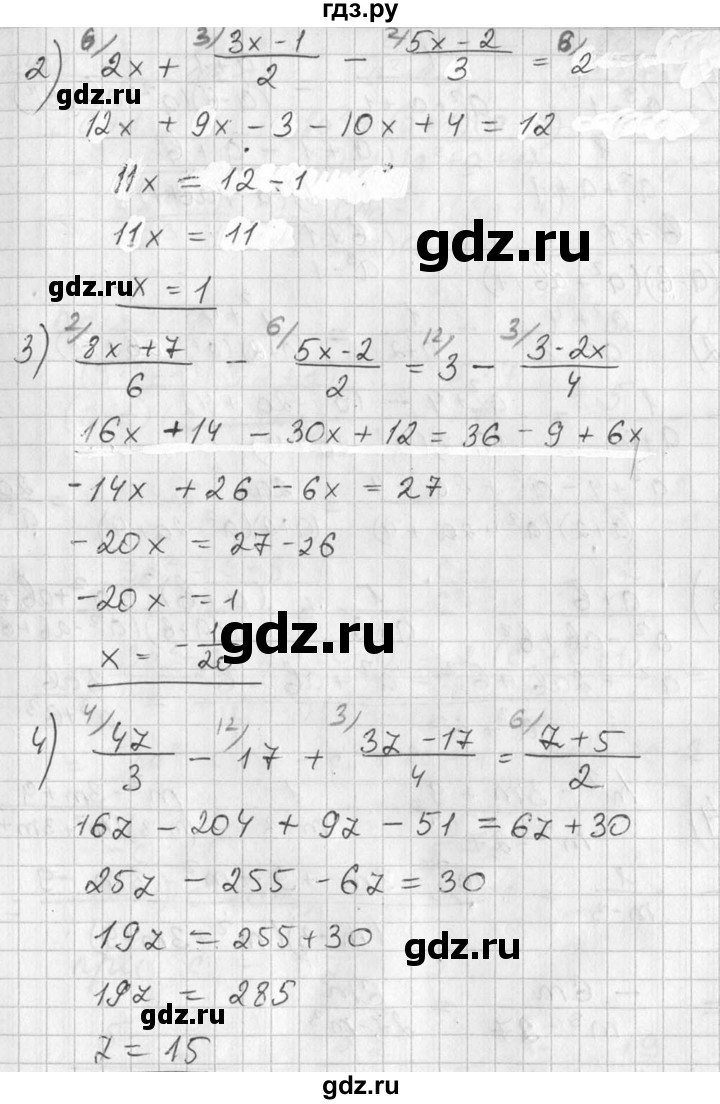 гдз.ру
2) 6/ 2x + 3/ (3x - 1)/2 - 2/ (5x - 2)/3 = 6/ 2
gdz.ru
12x + 9x - 3 - 10x + 4 = 12
11x = 12 - 1
11x = 11
gdz.ru
gdz.ru
x = 1
3) 2/ (8x + 7)/6 - 6/ (5x - 2)/2 = 12/ 3 - 3/ (3 - 2x)/4
16x + 14 - 30x + 12 = 36 - 9 + 6x
-14x + 26 - 6x = 27
-20x = 27 - 26
-20x = 1
gdz.ru
x = - 1/20
4) 4/ 4z/3 - 12/ 17 + 3/ (3z - 17)/4 = 6/ (z + 5)/2
16z - 204 + 9z - 51 = 6z + 30
25z - 255 - 6z = 30
19z = 255 + 30
gdz.ru
19z = 285
gdz.ru
z = 15
gdz.ru